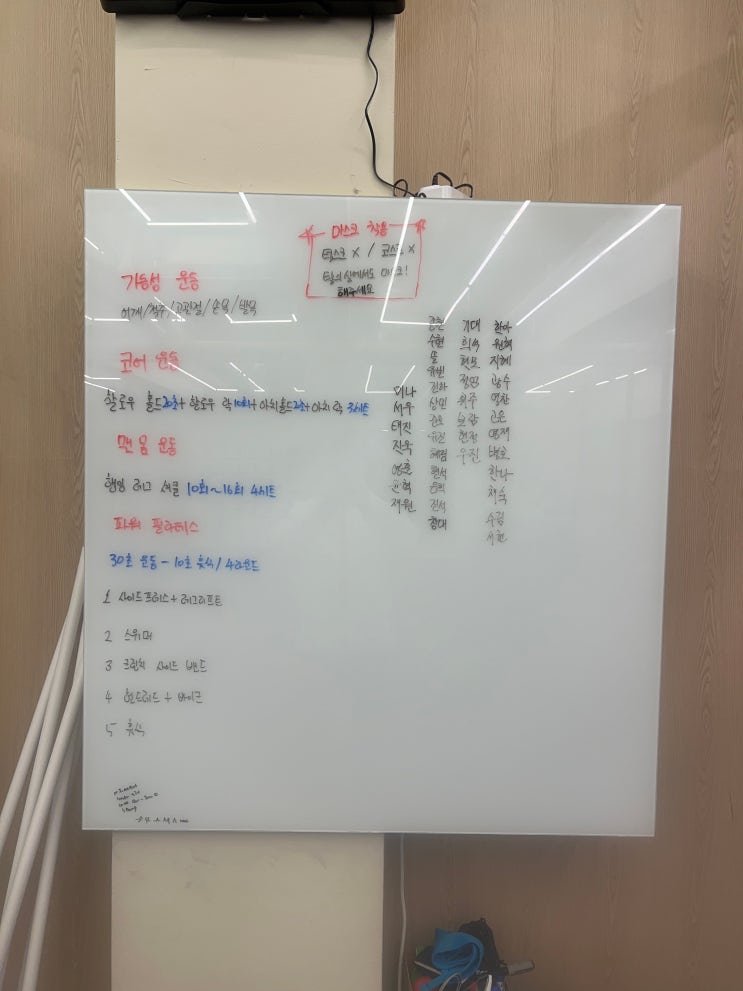 마스크 착용
턱스크 X / 코스크 X
탈의실에서도 마스크!
해주세요
기능성 운동
어깨/척추/고관절/손목/발목
코어 운동
할로우 홀드20초+할로우 락10회+아치홀드20초+아치락 3세트
맨몸 운동
행잉 레그 써클 10회~16회 4세트
파워 필라테스
30초 운동 - 10초 휴식/4라운드
1 사이드프레스+레그리프트
2 스위머
3 크런치 사이드 밴드
4 헌드레드 + 바이크
5 휴식
미나
서우
태진
진욱
영훈
윤혁
재원
수현
솔
유빈
진화
상민
유진
혜림
현석
진석
형대
기대
희석
현보
정연
보람
현정
우진
한아
원혁
지혜
광수
영환
고은
영재
병호
한나
채숙
수검
서현